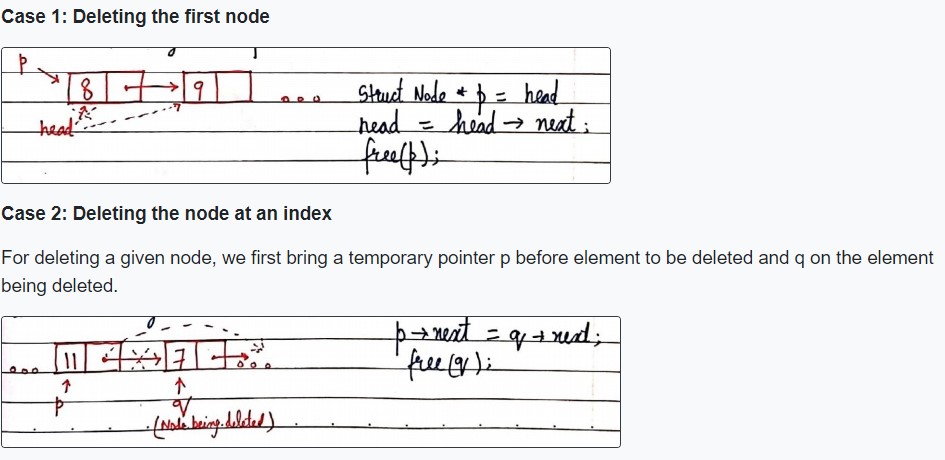 Case 1: Deleting the first node
p
8 9
head
Struct Node * p = head
head = head → next;
free(p);
Case 2: Deleting the node at an index
For deleting a given node, we first bring a temporary pointer p before element to be deleted and q on the element
being deleted.
11 7
p q
(Node being deleted)
p → next = q → next;
free (q);